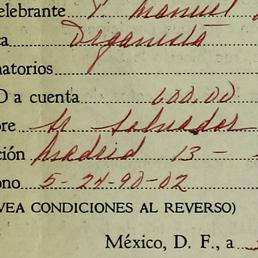 elebrante P Manuel
a Organista
natorios
O a cuenta 600.00
re Sn Salvador
ción Madrid 13 -
ono 5-24-90-02
VEA CONDICIONES AL REVERSO)
México, D. F., a